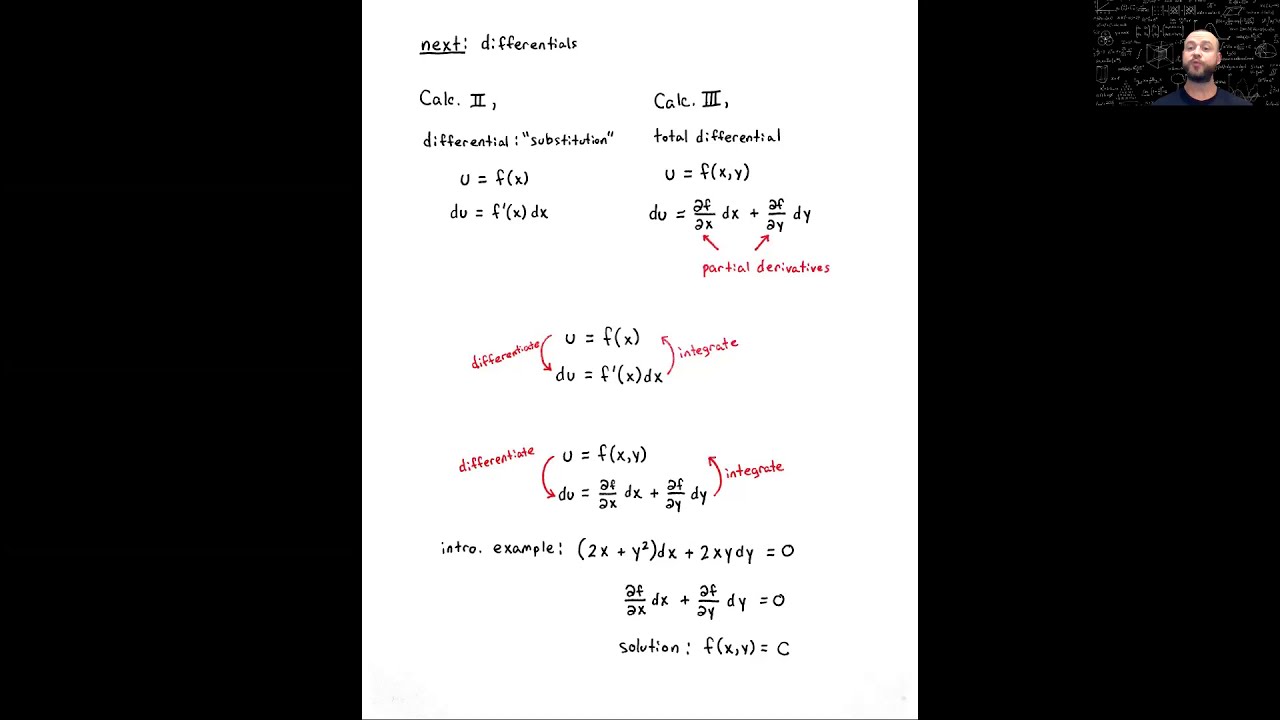 next: differentials
Calc. II,
differential: "substitution"
u = f(x)
du = f'(x) dx
Calc. III,
total differential
u = f(x,y)
du = ∂f/∂x dx + ∂f/∂y dy
partial derivatives
differentiate
u = f(x)
du = f'(x)dx
integrate
differentiate
u = f(x,y)
du = ∂f/∂x dx + ∂f/∂y dy
integrate
intro. example: (2x + y²)dx + 2xydy = 0
∂f/∂x dx + ∂f/∂y dy = 0
solution: f(x,y) = C